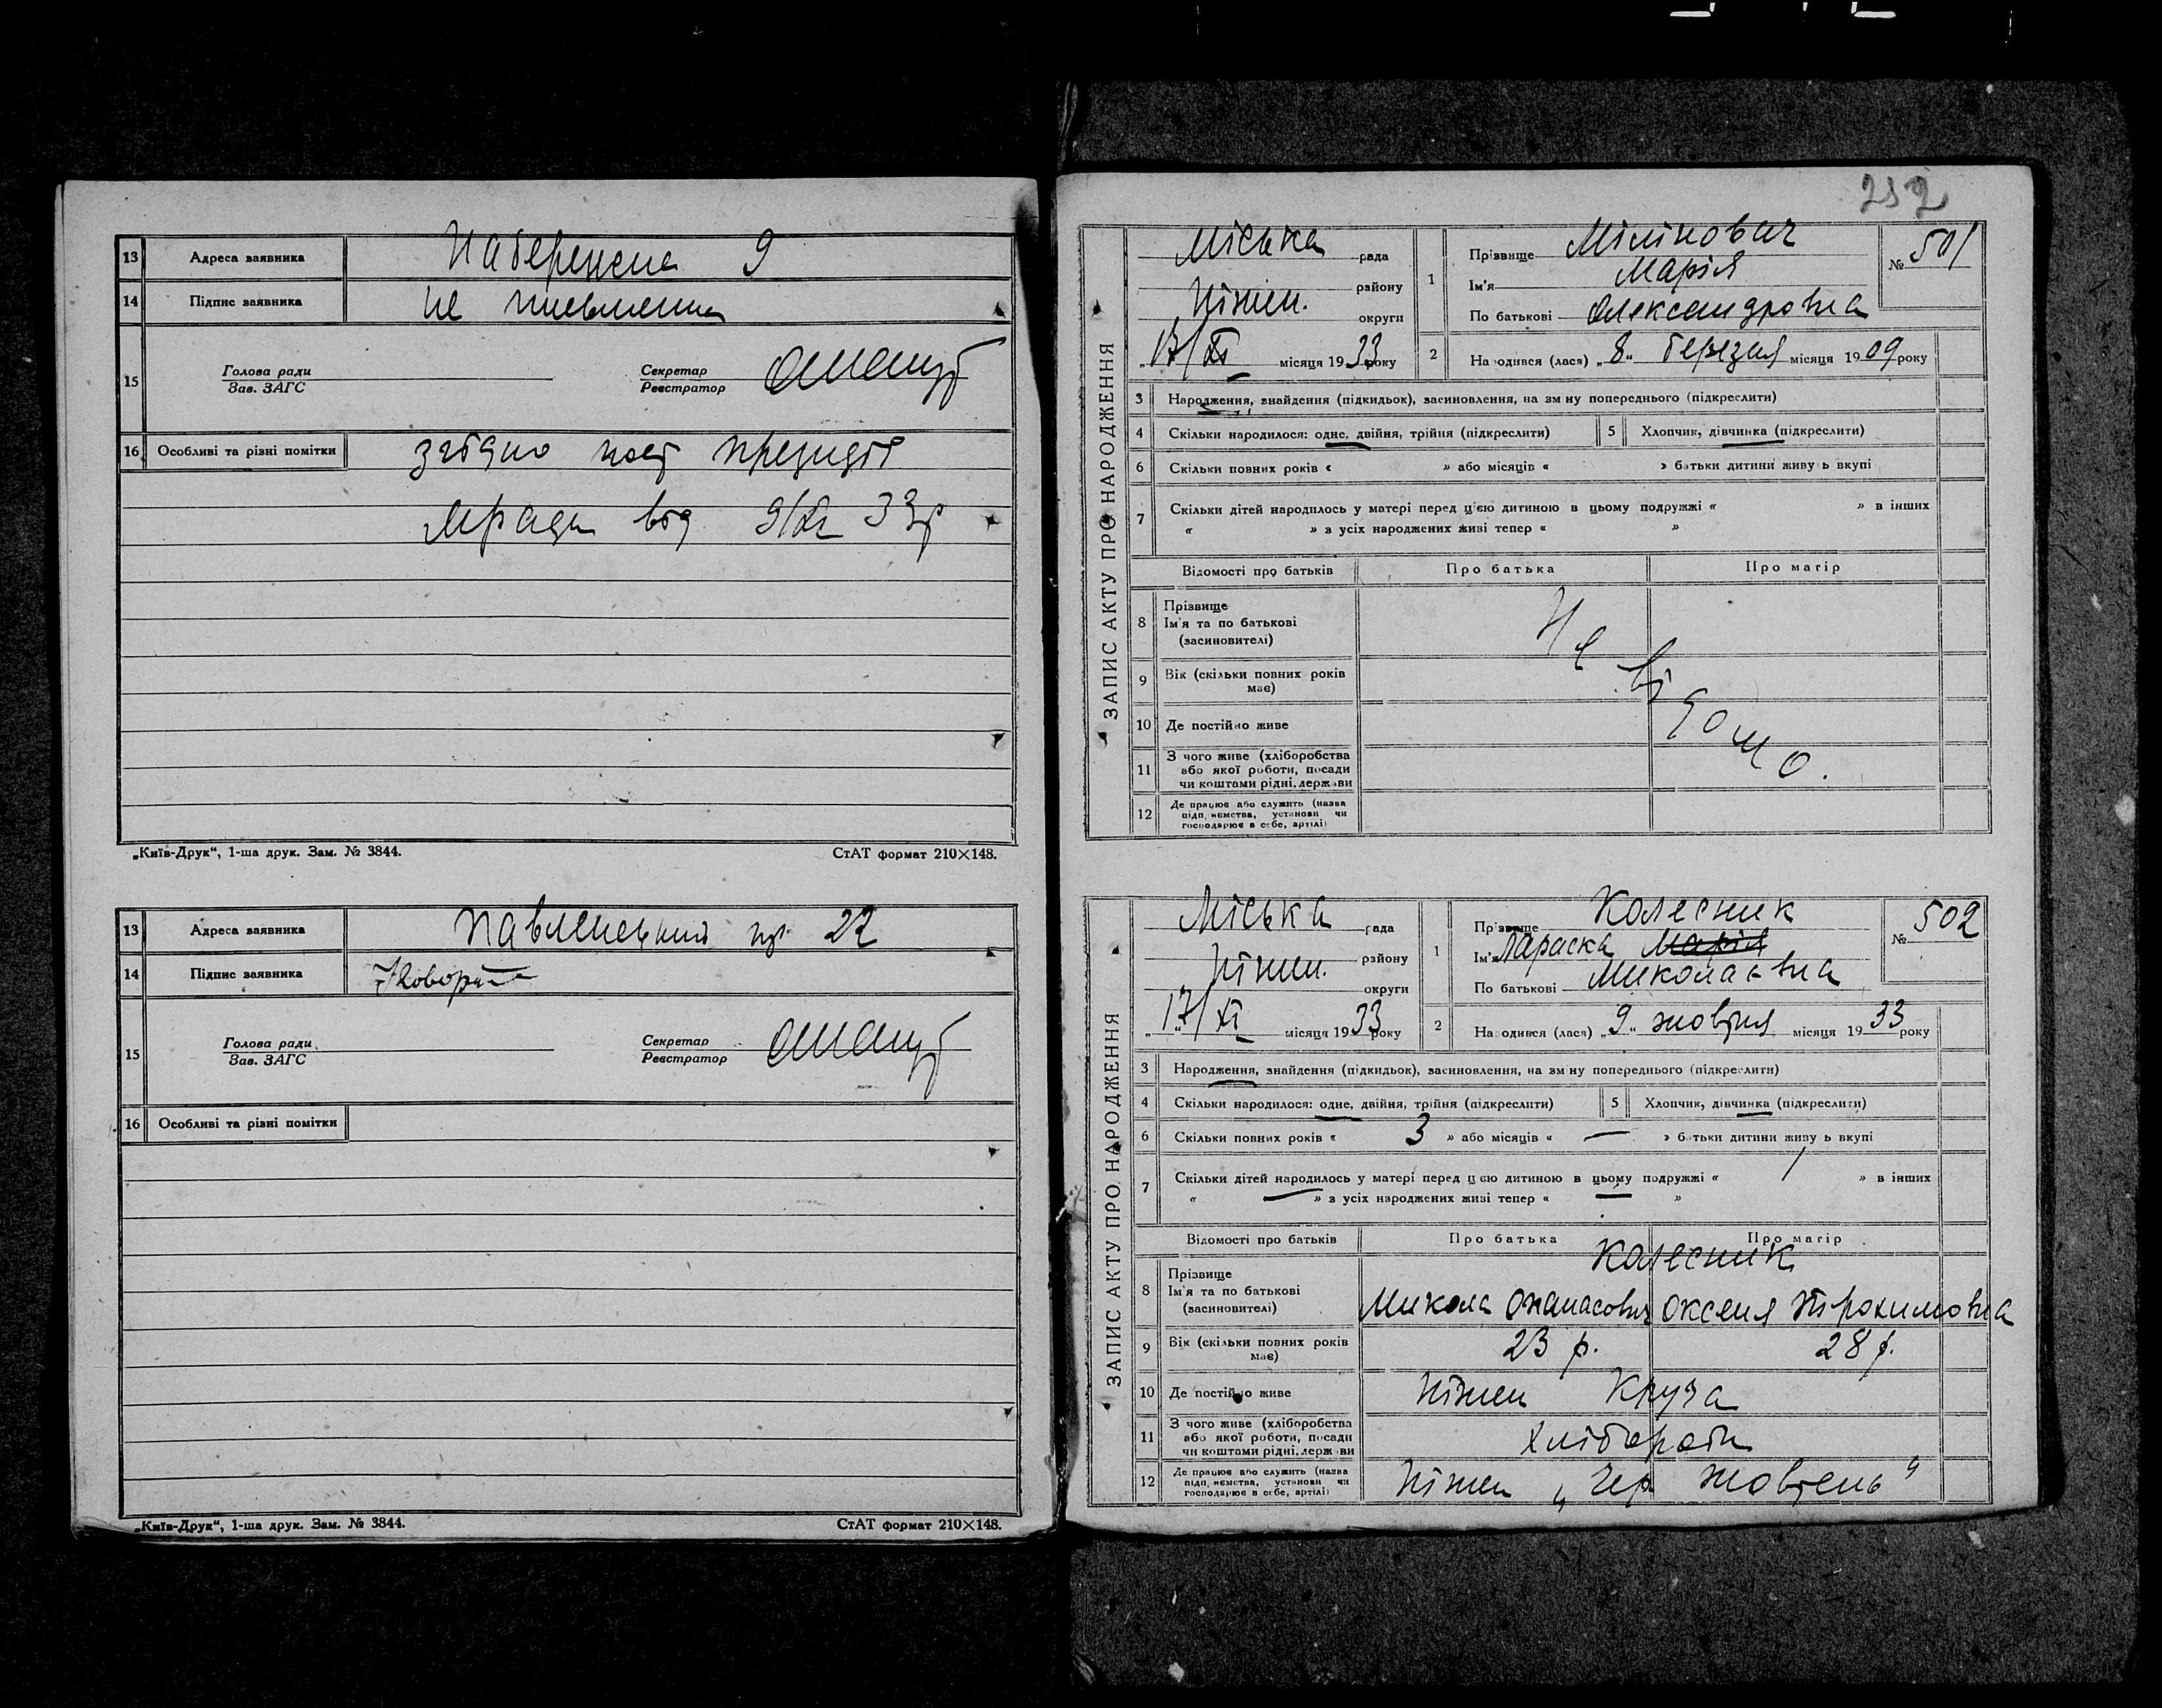 13 Адреса заявника Набережна 9
14 Підпис заявника не письменна
15 Голова ради Зав. ЗАГС Секретар Реєстратор
16 Особливі та різні помітки згідно пост президії
мради від 9/XI 33р
„Київ-Друк“, 1-ша друк. Зам. № 3844. СтАТ формат 210×148.
13 Адреса заявника 22
14 Підпис заявника
15 Голова ради Зав. ЗАГС Секретар Реєстратор
16 Особливі та різні помітки
„Київ-Друк“, 1-ша друк. Зам. № 3844. СтАТ формат 210×148.
232
ЗАПИС АКТУ ПРО НАРОДЖЕННЯ
Міська рада
району
Ніжин. округи
„17/XI місяця 1933 року
1 Прізвище Мілінович
Ім'я Марія
По батькові Олександровна
№ 501
2 Народився (лася) „8“ березня місяця 1909 року
3 Народження, знайдення (підкидьок), засиновлення, на зміну попереднього (підкреслити)
4 Скільки народилося: одне, двійня, трійня (підкреслити) 5 Хлопчик, дівчинка (підкреслити)
6 Скільки повних років « » або місяців « » батьки дитини живуть вкупі
7 Скільки дітей народилось у матері перед цією дитиною в цьому подружжі « » в інших
« » з усіх народжених живі тепер « »
Відомості про батьків Про батька Про матір
8 Прізвище
Ім'я та по батькові
(засиновителі)
9 Вік (скільки повних років має)
10 Де постійно живе
11 З чого живе (хліборобства
або якої роботи, посади
чи коштами рідні, держави
12 Де працює або служить (назва
підприємства, установи чи
господарює в себе, артілі)
Не відомо.
ЗАПИС АКТУ ПРО НАРОДЖЕННЯ
Міська рада
району
Ніжин. округи
„17/XI місяця 1933 року
1 Прізвище Колесник
Ім'я Параска Марія
По батькові Миколаєвна
№ 502
2 Народився (лася) „9“ жовтня місяця 1933 року
3 Народження, знайдення (підкидьок), засиновлення, на зміну попереднього (підкреслити)
4 Скільки народилося: одне, двійня, трійня (підкреслити) 5 Хлопчик, дівчинка (підкреслити)
6 Скільки повних років « 3 » або місяців « — » батьки дитини живуть вкупі
7 Скільки дітей народилось у матері перед цією дитиною в цьому подружжі « 1 » в інших
« — » з усіх народжених живі тепер « — »
Відомості про батьків Про батька Про матір
Колесник
8 Прізвище
Ім'я та по батькові
(засиновителі)
Микола Опанасович Оксеня Трохимовна
9 Вік (скільки повних років має) 23 р. 28 р.
10 Де постійно живе Ніжин Круча
11 З чого живе (хліборобства
або якої роботи, посади
чи коштами рідні, держави
Хлібороби
12 Де працює або служить (назва
підприємства, установи чи
господарює в себе, артілі)
Ніжин „Чер жовтень“